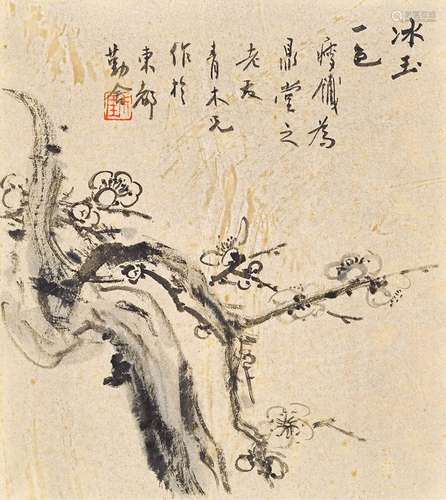 冰玉
一色
瘦鐵為
鼎堂之
老友
青木兄
作於
東都